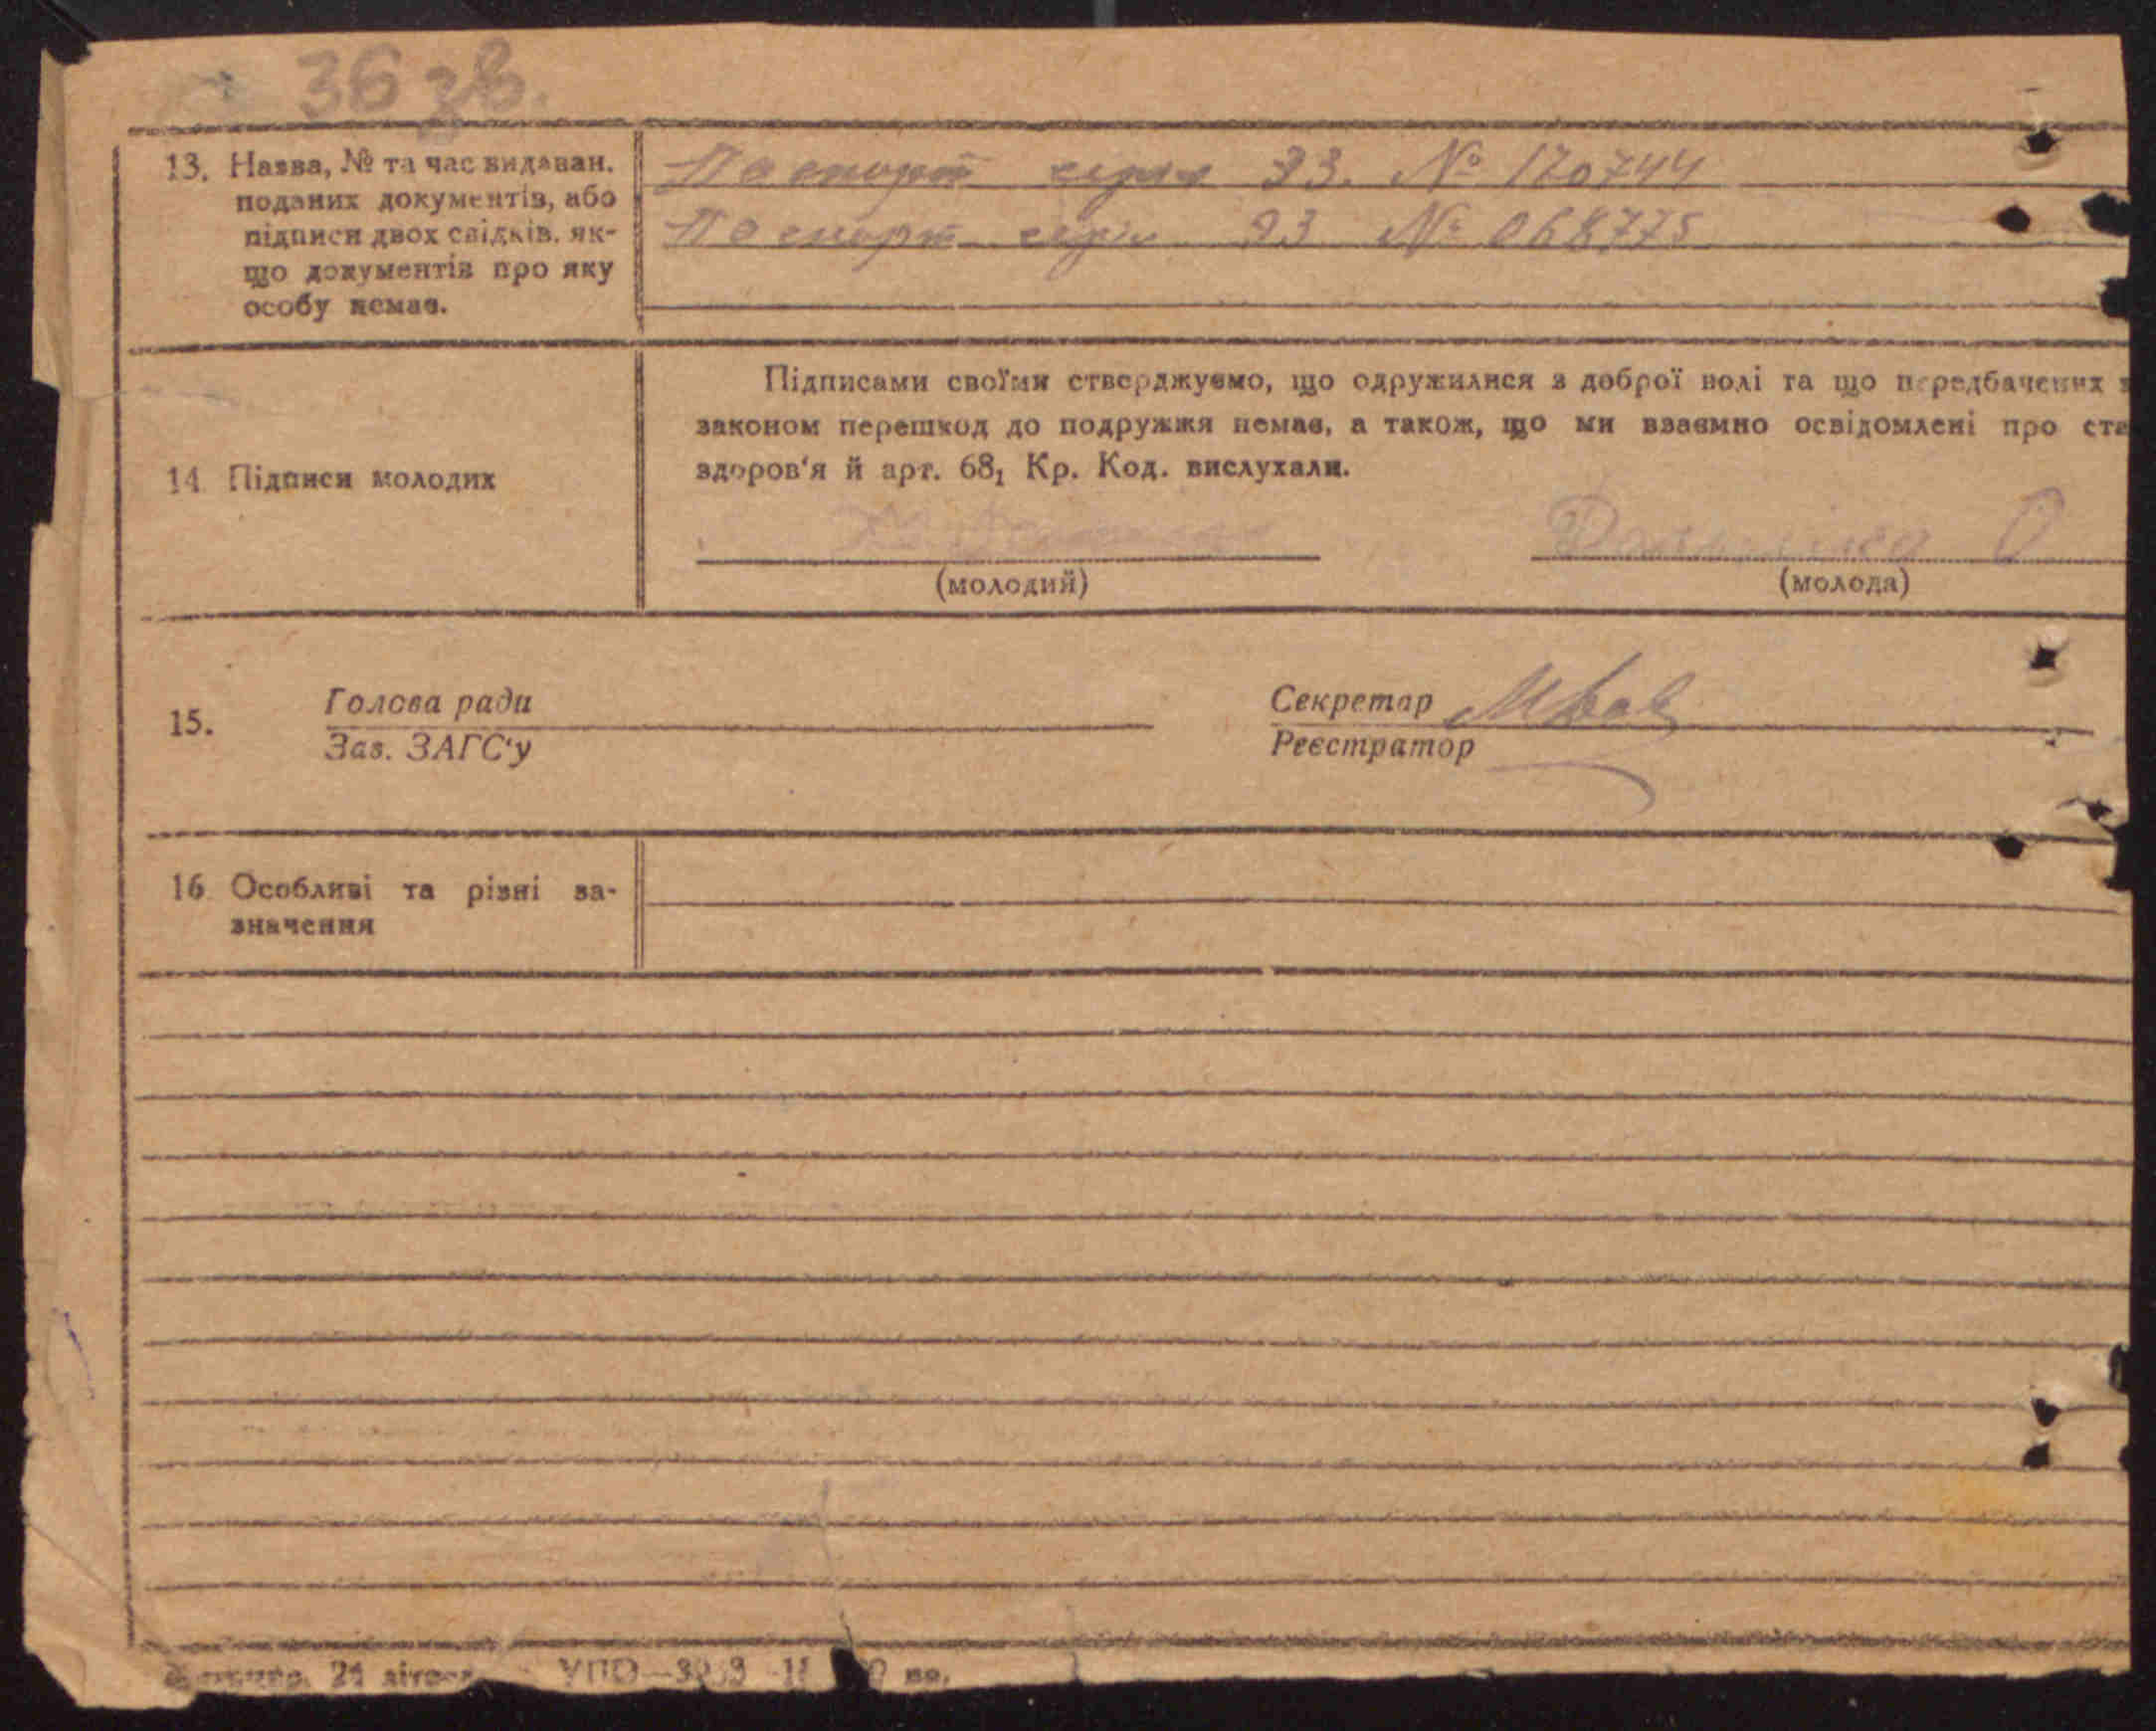 36 зв.
13. Назва, № та час видаван.
поданих документів, або
підписи двох свідків, як-
що документів про яку
особу немає.
Паспорт серія ЭЗ. № 120744
Паспорт серія № 068775
Підписами своїми стверджуємо, що одружилися з доброї волі та що передбачених з
законом перешкод до подружжя немає, а також, що ми взаємно освідомлені про ста
здоров'я й арт. 68₁ Кр. Код. вислухали.
14. Підписи молодих
О
(молодий) (молода)
15. Голова ради Секретар
Зав. ЗАГС'у Реєстратор
16. Особливі та різні за-
значення
24 УПО